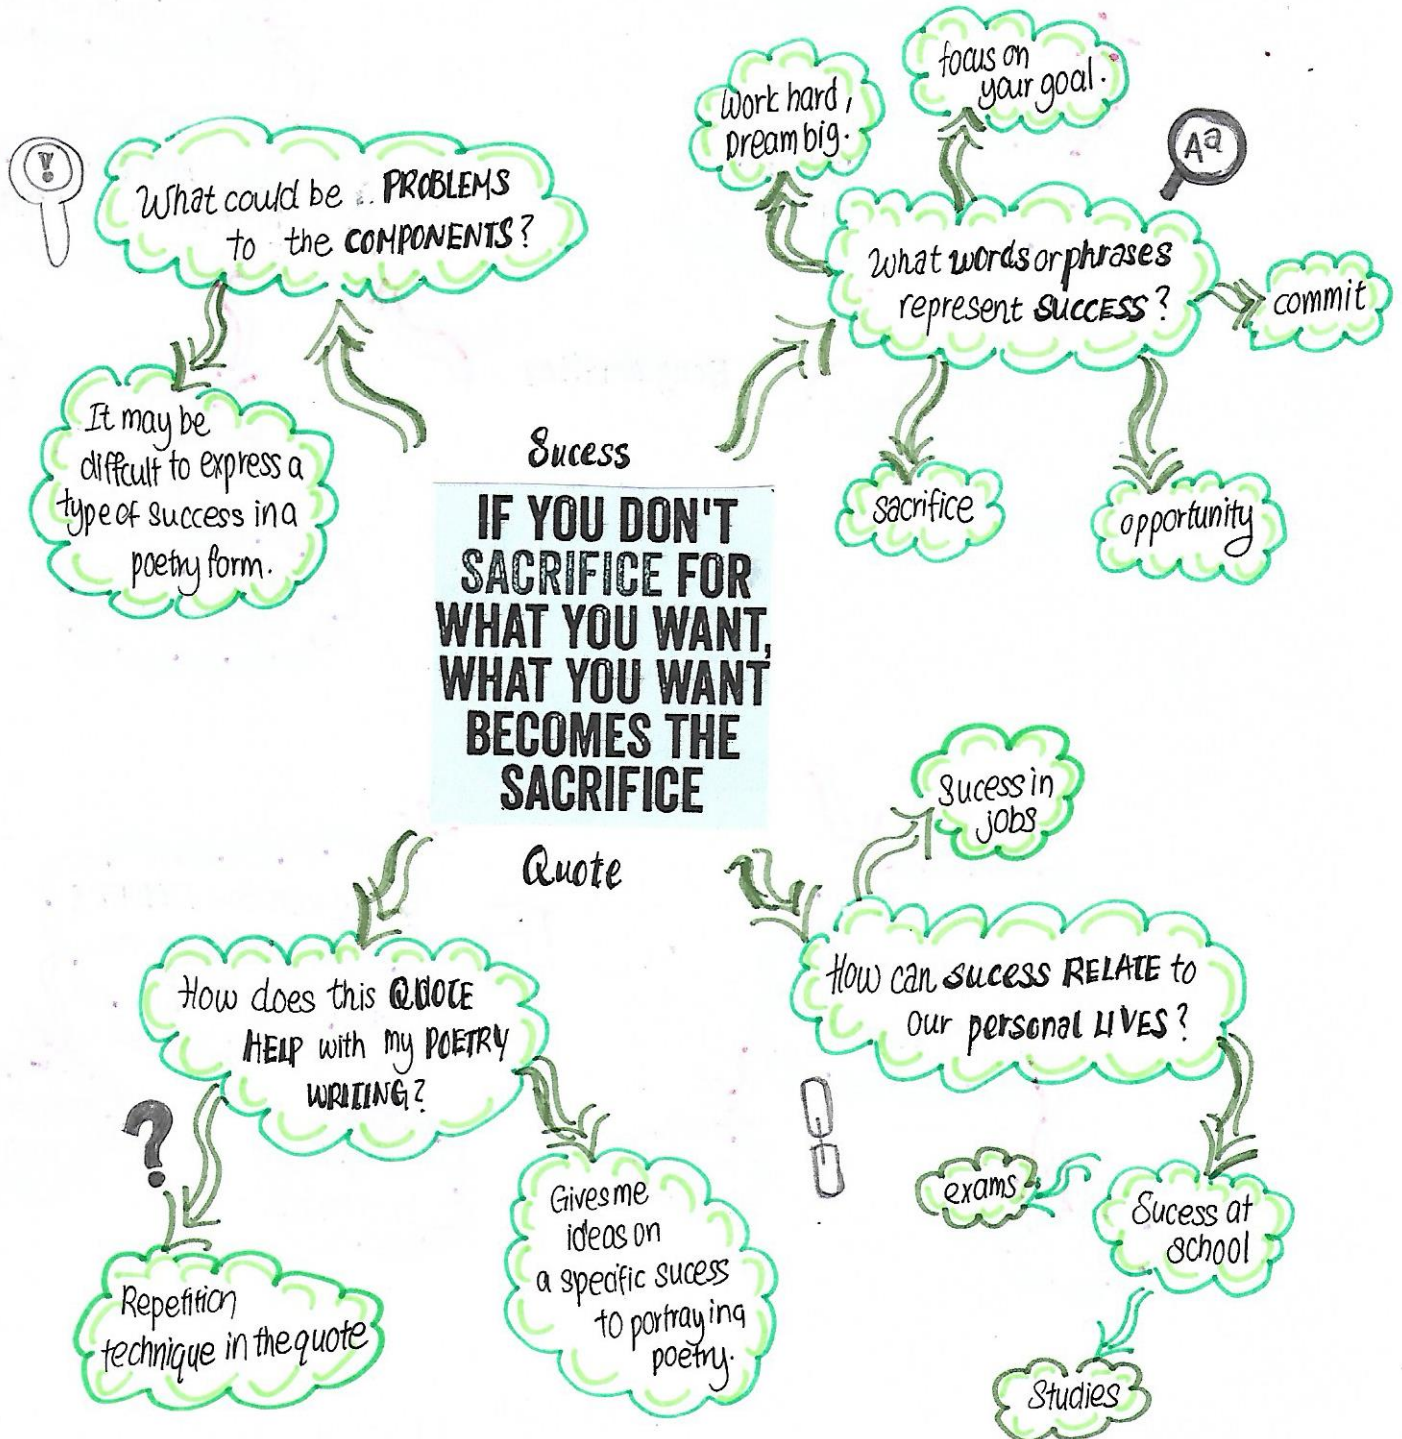 What could be .. PROBLEMS
to the COMPONENTS?
It may be
diffcult to express a
type of success in a
poetry form.
Work hard,
Dream big.
focus on
your goal.
Aa
What words or phrases
represent SUCCESS?
commit
sacrifice
opportunity
Sucess
IF YOU DON'T
SACRIFICE FOR
WHAT YOU WANT,
WHAT YOU WANT
BECOMES THE
SACRIFICE
Quote
How does this QUOTE
HELP with my POETRY
WRITING?
?
Repetition
technique in the quote
Gives me
ideas on
a specific sucess
to portraying
poetry.
Sucess in
jobs
How can sucess RELATE to
our personal LIVES?
exams
Sucess at
school
Studies
!